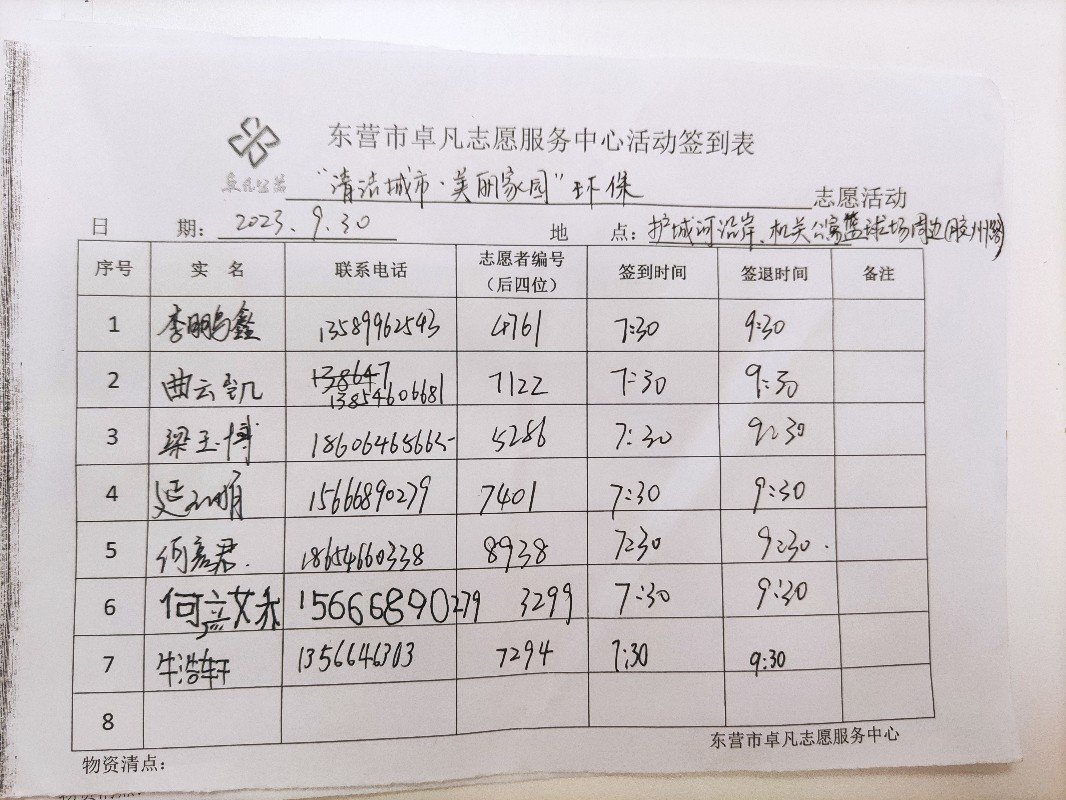 东营市卓凡志愿服务中心活动签到表
卓凡公益 "清洁城市·美丽家园"环保 志愿活动
日 期: 2023.9.30 地 点: 护城河沿岸、机关公寓篮球场周边(胶州路)
序号 实 名 联系电话 志愿者编号（后四位） 签到时间 签退时间 备注
1 李鹏鑫 13589962543 4761 7:30 9:30
2 曲云凯 13854606681 7122 7:30 9:30
3 梁玉博 18606465665 5286 7:30 9:30
4 15666890279 7401 7:30 9:30
5 何彦君 18654660338 8938 7:30 9:30
6 何 15666890279 3299 7:30 9:30
7 牛浩轩 1356646303 7294 7:30 9:30
8
东营市卓凡志愿服务中心
物资清点：